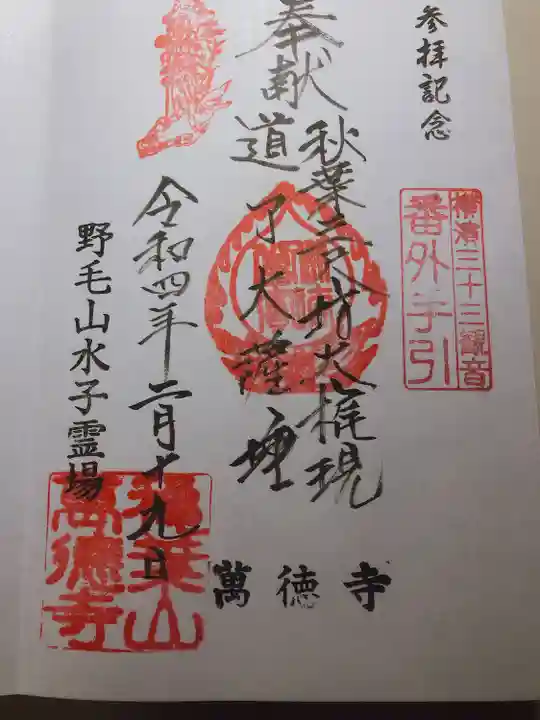 参拝記念
横濱三十三観音
番外手引
秋葉三尺坊大権現
奉献道了大薩埵
令和四年二月十九日
野毛山水子霊場
萬徳寺
萬德寺